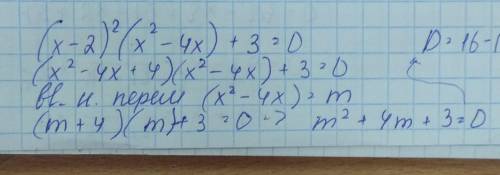 (x-2)²(x²-4x)+3=0
(x²-4x+4)(x²-4x)+3=0
вв. н. перем (x²-4x)=m
(m+4)(m)+3=0 -> m²+4m+3=0
D=16-1